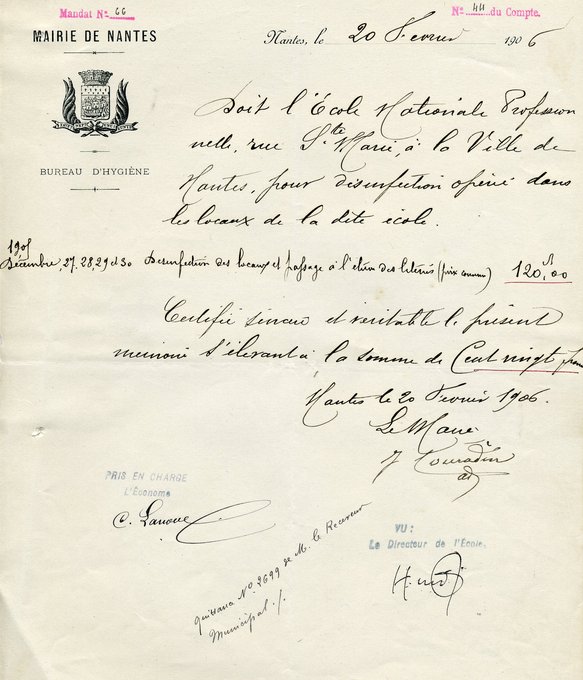 Mandat N° 66
N° 44 du Compte.
MAIRIE DE NANTES
Nantes, le 20 Fevrier 1906
BUREAU D'HYGIÈNE
Doit l'École Nationale Profession
nelle, rue Ste Marie, à la Ville de
Nantes, pour désinfection opéré dans
les locaux de la dite école.
1905
Décembre, 27, 28, 29 et 30 Désinfection des locaux et passage à l'étuve des literies (prix convenu) 120f,00
Certifié sincère et véritable le présent
memoire s'élevant à la somme de Cent vingt francs
Nantes le 20 Fevrier 1906.
Le Maire
PRIS EN CHARGE
L'Économe
C. Lanoue
VU:
Le Directeur de l'École,
Quittance N° 2699 de M. le Receveur
Municipal ./.